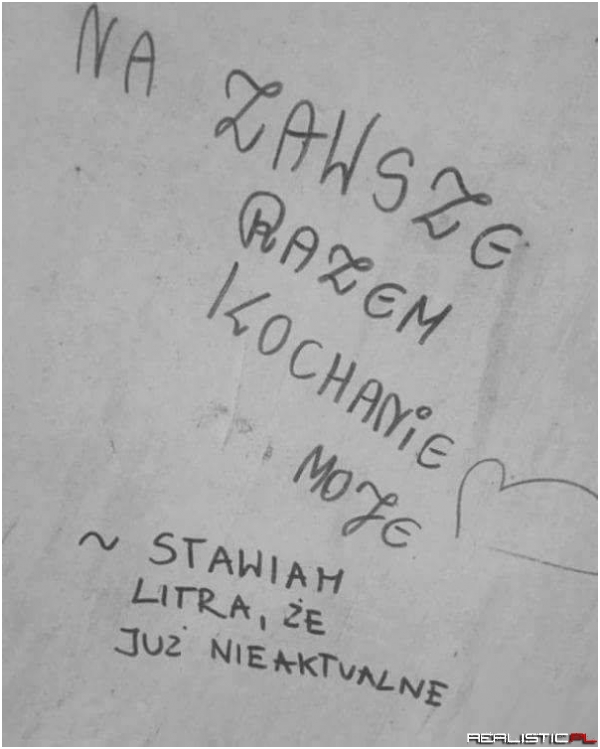 NA ZAWSZE
RAZEM
KOCHANIE
MOJE
~ STAWIAM
LITRA, ŻE
JUŻ NIEAKTUALNE
REALISTICPL